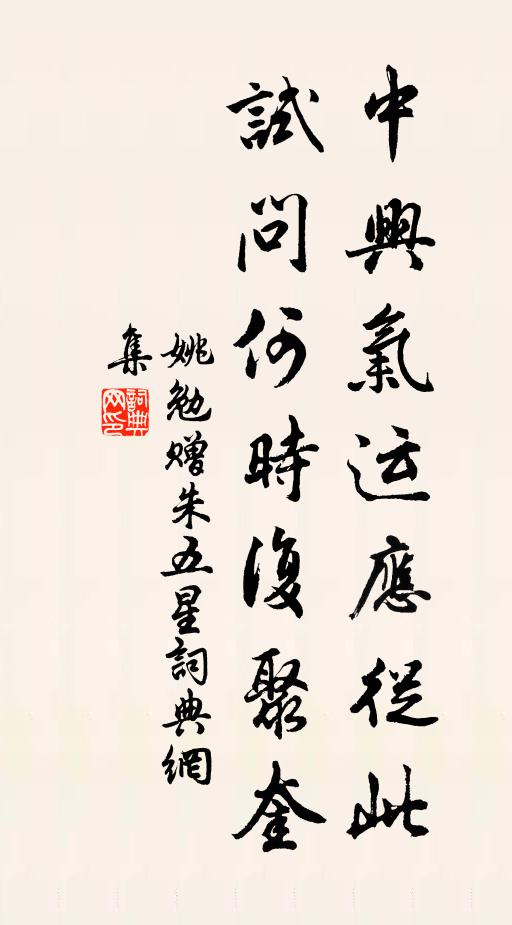 中興氣运應從此
試問何時復聚奎
姚勉赠朱五星詞典網
集
詞典
网印